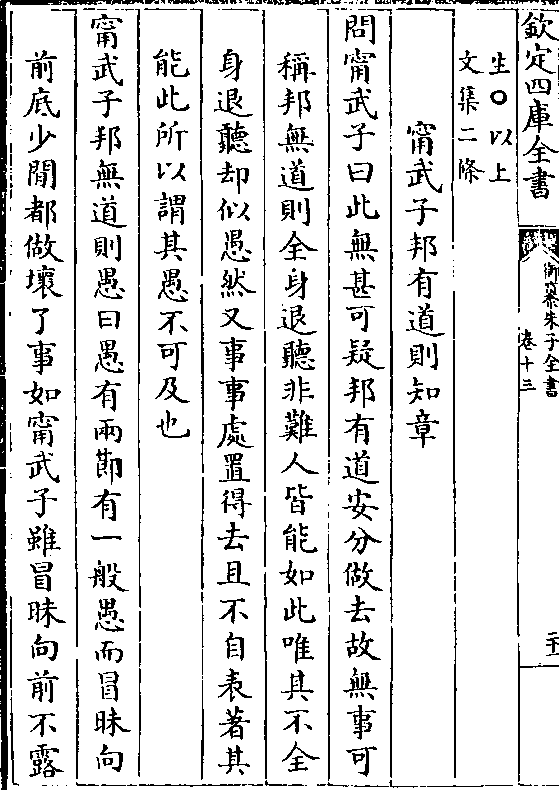 欽定四庫全書
御纂朱子全書
卷十三
生○以上
文集二條
甯武子邦有道則知章
問甯武子曰此無甚可疑邦有道安分做去故無事可
稱邦無道則全身退聽非難人皆能如此唯其不全
身退聽却似愚然又事事處置得去且不自表著其
能此所以謂其愚不可及也
甯武子邦無道則愚曰愚有兩節有一般愚而冒昧向
前底少閒都做壞了事如甯武子雖冒昧向前不露